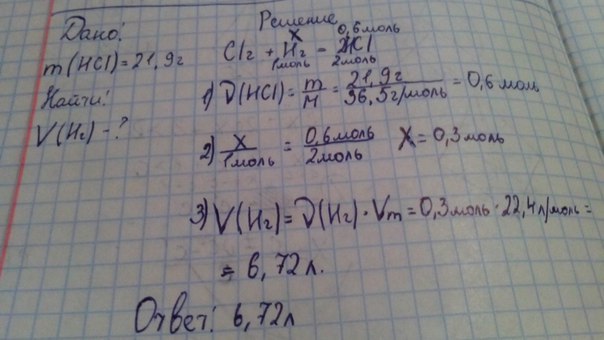 Дано:
m(HCl)=21,9г
Найти:
V(H₂)-?
Решение
x 0,6моль
Cl₂ + H₂ = 2HCl
1моль 2моль
1) ν(HCl) = m/M = 21,9г/36,5г/моль = 0,6 моль
2) x/1моль = 0,6моль/2моль x = 0,3 моль
3) V(H₂) = ν(H₂) · Vm = 0,3моль · 22,4л/моль =
= 6,72л.
Ответ: 6,72л